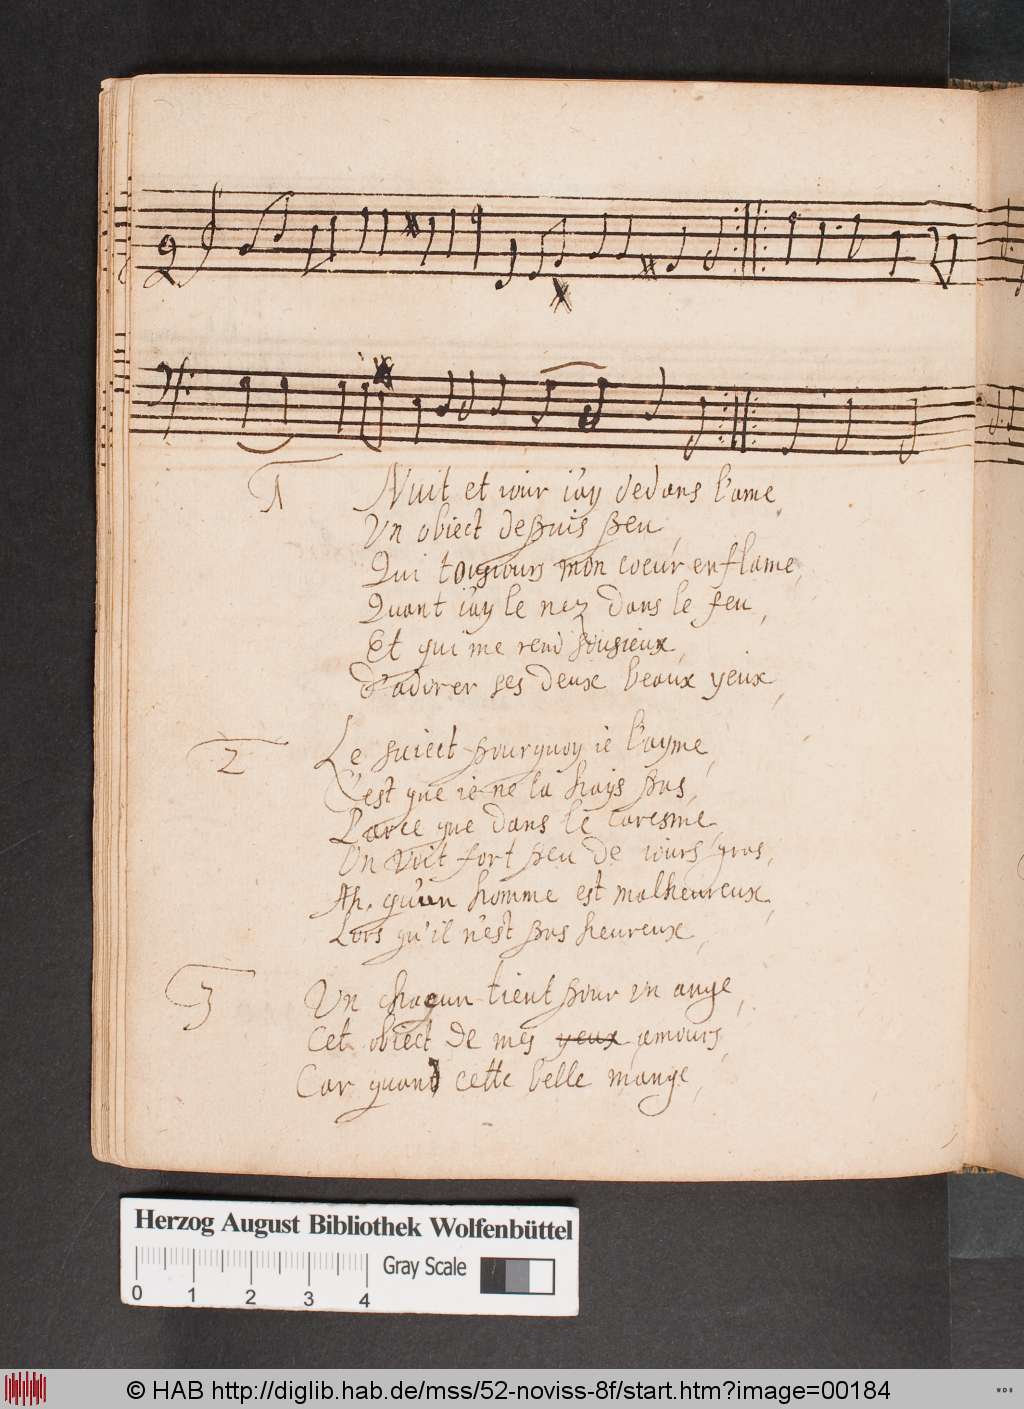 1
Nuit et iour i'ay dedans l'ame
Un obiect depuis peu,
Qui tousiours mon coeur enflame,
Quant i'ay le nez dans le feu,
Et qui me rend sousieux,
D'adorer ses deux beaux yeux,
2
Le suiect pourquoy ie l'ayme,
C'est que ie ne la hays pas,
Parce que dans le caresme
On voit fort peu de iours gras,
Ah. qu'un homme est malheureux,
Lors qu'il n'est pas heureux,
3
Un chaqun tient pour un ange,
Cet obiect de mes yeux amours,
Car quand cette belle mange,
Herzog August Bibliothek Wolfenbüttel
Gray Scale
0 1 2 3 4
© HAB http://diglib.hab.de/mss/52-noviss-8f/start.htm?image=00184